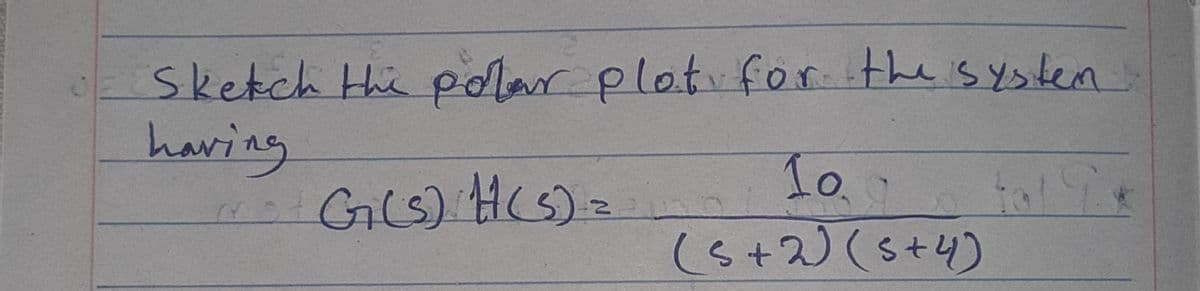 Sketch the polar plot for the system
having
G(s) H(s) = 10
(s+2)(s+4)